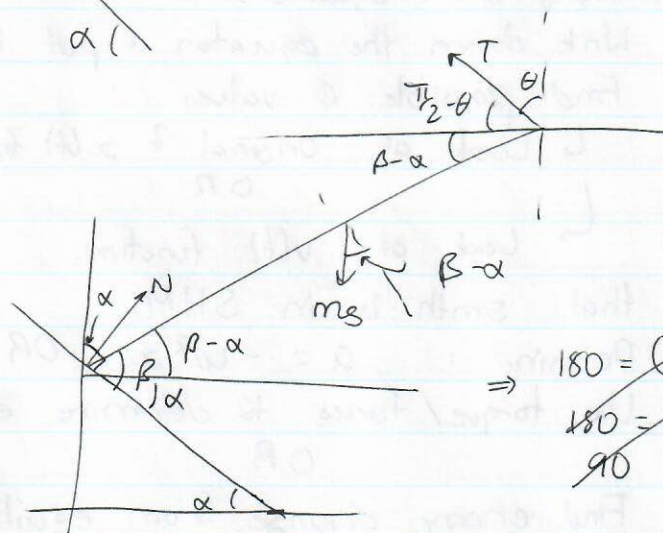 α
T
θ
π/2-θ
β-α
β-α
mg
α
N
β-α
β
α
⇒ 180 = (
180 =
90
α